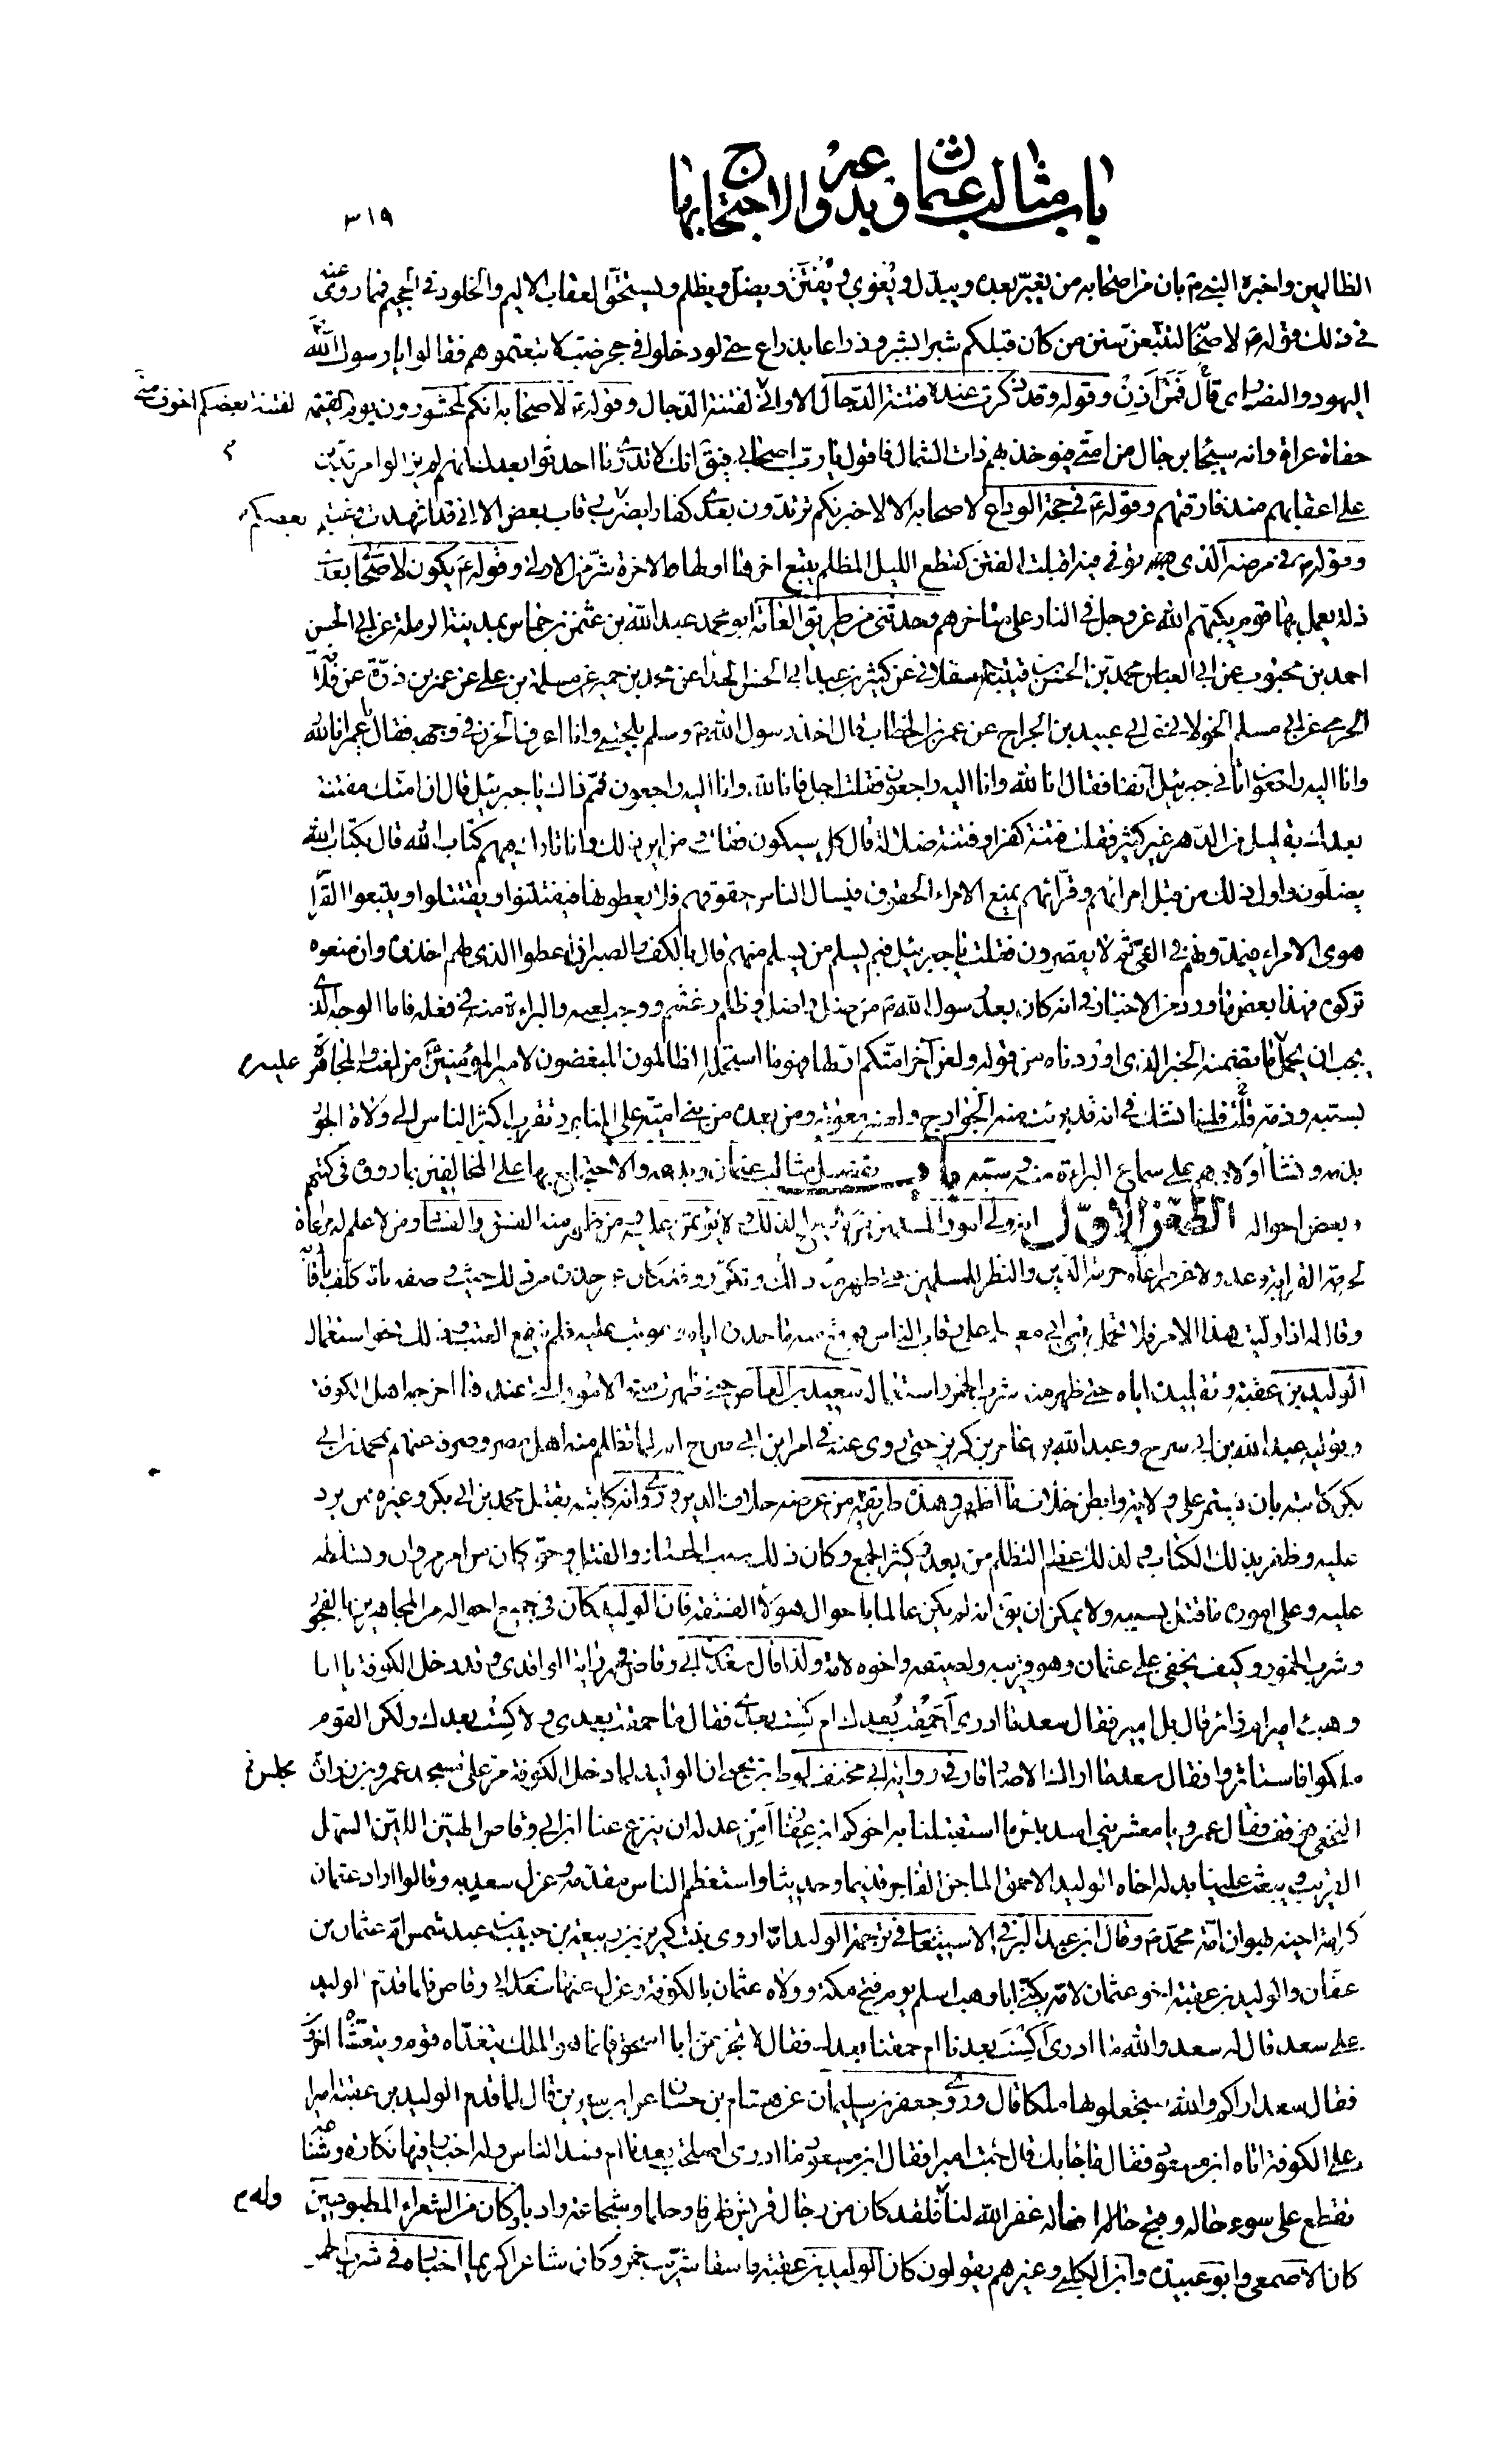 باب مثالب عثمان وبدعه والاحتجاج بها
٣١٩
الظالمين واخبره النبي ص بان من اصحابه من يغير بعده ويبدل ويغوي ويفتن ويضل ويظلم ويستحق العقاب الاليم والخلود في الجحيم فما روي عنه
في ذلك قوله ص لاصحابه لتتبعن سنن من كان قبلكم شبرا بشبر وذراعا بذراع حتى لو دخلوا في جحر ضب لاتبعتموهم فقالوا يا رسول الله
اليهود والنصارى قال فمن اذن وقوله وقد ذكرت عنده فتنة الدجال الا واني لفتنة الدجال وقوله ص لاصحابه انكم لمحشورون يوم القيمة
لفتنة بعضكم اخوف مني
حفاة عراة وانه سيجاء برجال من امتي فيؤخذ بهم ذات الشمال فاقول يا رب اصحابي فيق انك لا تدري ما احدثوا بعدك انهم لم يزالوا مرتدين
على اعقابهم منذ فارقتهم وقوله ص في حجة الوداع لاصحابه الا لاخبرنكم ترتدون بعدي كفارا يضرب رقاب بعض الا اني قد شهدت وغبتم
بعضكم
وقوله ص في مرضه الذي توفي فيه اقبلت الفتن كقطع الليل المظلم يتبع اخرها اولها الاخرة شر من الاولى وقوله ص يكون لاصحابي بعدي
زلة يعمل بها قوم يكبهم الله عز وجل في النار على مناخرهم وحدثني من طريق العامة ابو محمد عبد الله بن عثمن بن حماس بمدينة الرملة عن ابي الحسن
احمد بن محبوب عن ابي العباس محمد بن الحسن بن قتيبة العسقلاني عن كثير بن عبيد ابي الحسن الحذاء عن محمد بن حمير عن مسلمة بن علي عن عمر بن ذرة عن قلابة
الجرمي عن ابي مسلم الخولاني عن ابي عبيد بن الجراح عن عمر بن الخطاب قال اخذ رسول الله ص وسلم بلحيتي وانا اعرف الحزن في وجهه فقال يا عمر انا لله
وانا اليه راجعون اتاني جبرئيل آنفا فقال انا لله وانا اليه راجعون فقلت اجل فانا لله وانا اليه راجعون فمم ذاك يا جبرئيل قال ان امتك مفتتنة
بعدك بقليل من الدهر غير كثير فقلت فتنة كفر او فتنة ضلالة قال كل سيكون فقلت ومن اين ذلك وانا تارك فيهم كتاب الله قال بكتاب الله
يضلون واول ذلك من قبل امرائهم وقرائهم يمنع الامراء الحقوق فيسال الناس حقوقهم فلا يعطونها فيفتتنوا ويقتتلوا ويتبعوا القراء
هوى الامراء فيمدونهم في الغي ثم لا يقصرون فقلت يا جبرئيل فبم يسلم من يسلم منهم قال بالكف والصبر ان اعطوا الذي لهم اخذوه وان منعوه
تركوه فهذا بعض ما ورد من الاخبار في انه كان بعد رسول الله ص من بدل واضل وظلم وغشم ووجب لعنه والبراءة منه في فعله فاما الوجه الذي
يجب ان يحمل ما تضمنه الخبر الذي اوردناه من قوله ولعن آخر امتكم اولها فهو ما استحل الظالمون المبغضون لامير المؤمنين من لعنه والمجاهرة
عليه م
بسبه وذمه فلسنا نشك في انه قد تبرئت منه الخوارج ولعنه معوية ومن بعده من بني امية على المنابر وتقرب اكثر الناس الى ولاة الجور
بذمه ونشأ اولادهم على سماع البراءة منه وسبه باب تفصيل مثالب عثمان وبدعه والاحتجاج بها على المخالفين بما رووه في كتبهم
وبعض احواله الطعن الاول انه ولى امور المسلمين من لا يصلح لذلك ولا يؤتمن عليه ومن ظهر منه الفسق والفساد ومن لا علم له مراعاة
لحرمة القرابة وعدولا عن مراعاة حرمة الدين والنظر للمسلمين حتى ظهر ذلك منه وتكرر وقد كان عمر حذره من ذلك حيث وصفه بانه كلف باقاربه
وقال له اذا وليت هذا الامر فلا تحمل بني ابي معيط على رقاب الناس فوقع منه ما حذره اياه وعوتب عليه فلم ينفع العتب وذلك نحو استعماله
الوليد بن عقبة وتقليده اياه حتى ظهر منه شرب الخمر واستعماله سعيد بن العاص حتى ظهرت منه الامور التي عندها اخرجه اهل الكوفة
وتوليته عبد الله بن ابي سرح وعبد الله بن عامر بن كريز حتى روي عنه في امر ابن ابي سرح انه لما تظلم منه اهل مصر وصرفه عنهم بمحمد بن ابي
بكر كاتبه بان يستمر على ولايته وابطن خلاف ما اظهر وهذه طريقة من غرضه خلاف الدين وروي انه كاتبه بقتل محمد بن ابي بكر وغيره ممن يرد
عليه وظفر بذلك الكتاب ولذلك عظم التظلم من بعد وكثر الجمع وكان ذلك سبب الحصار والقتل وحتى كان من امر مروان وتسلطه
عليه وعلى اموره ما قتل بسببه ولا يمكن ان يق انه لم يكن عالما باحوال هؤلاء الفسقة فان الوليد كان في جميع احواله من المجاهرين بالفجور
وشرب الخمور وكيف يخفى على عثمان وهو قريبه ولصيقه واخوه لامه ولذا قال سعد بن ابي وقاص في رواية الواقدي وقد دخل الكوفة يا ابا
وهب امير ام زائر قال بل امير فقال سعد ما ادري احمقت بعدك ام كست بعدي فقال ما حمقت بعدي ولا كست بعدك ولكن القوم
ملكوا فاستاثروا فقال سعد ما اراك الا صادقا وفي رواية ابي مخنف لوط بن يحيى ان الوليد لما دخل الكوفة مر على مسجد عمرو بن زرارة
مجلس
النخعي فوقف فقال عمرو يا معشر بني اسد بئس ما استقبلنا به اخوكم ابن عفان امن عدله ان ينزع عنا ابن ابي وقاص الهين اللين السهل
القريب ويبعث علينا بدله اخاه الوليد الاحمق الماجن الفاجر قديما وحديثا واستعظم الناس مقدمه وعزل سعد به وقالوا اراد عثمان
كرامة اخيه بهوان امة محمد ص وقال ابن عبد البر في الاستيعاب في ترجمة الوليد امه اروى بنت كريز بن ربيعة بن حبيب بن عبد شمس ام عثمان بن
عفان والوليد بن عقبة اخو عثمان لامه يكنى ابا وهب اسلم يوم فتح مكة وولاه عثمان بالكوفة وعزل عنها سعد بن ابي وقاص فلما قدم الوليد
على سعد قال له سعد والله ما ادري اكست بعدنا ام حمقنا بعدك فقال لا تجزعن ابا اسحق فانما هو الملك يتغداه قوم ويتعشاه اخرون
فقال سعد اراكم والله ستجعلونها ملكا قال وروى جعفر بن سليمان عن هشام بن حسان عن ابن سيرين قال لما قدم الوليد بن عقبة اميرا
على الكوفة اتاه ابن مسعود فقال ما جاء بك قال جئت اميرا فقال ابن مسعود ما ادري اصلحت بعدنا ام فسد الناس وله اخبار فيها نكارة وشناعة
تقطع على سوء حاله وقبح افعاله غفر الله لنا وله فلقد كان من رجال قريش ظرفا وحلما وشجاعة وادبا وكان من الشعراء المطبوعين
وله م
كان الاصمعي وابو عبيدة وابن الكلبي وغيرهم يقولون كان الوليد بن عقبة فاسقا شريب خمر وكان شاعرا كريما اخباره في شرب الخمر